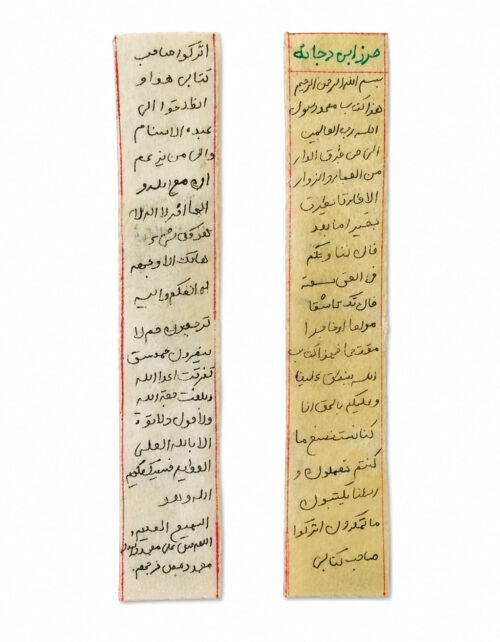 حرز ابی دجانه
بسم الله الرحمن الرحیم
هذا کتاب محمد رسول
الله رب العالمین
الی من طرق الدار
من العمار و الزوار
الا طارقا یطرق
بخیر اما بعد
فان لنا و لکم
فی الحق سعة
فان تک عاشقا
مولعا او فاجرا
مقتحما فهذا کتاب
الله ینطق علینا
و علیکم بالحق انا
کنا نستنسخ ما
کنتم تعملون و
رسلنا یکتبون
ما تمکرون اترکوا
صاحب کتابی
اترکوا صاحب
کتابی هذا و
انطلقوا الی
عبدة الاصنام
والی من یزعم
ان مع الله
الها آخر لا اله الا
هو کل شیء
هالک الا وجهه
له الحکم و الیه
ترجعون حم لا
ینصرون حمعسق
تفرقت اعدا الله
وبلغت حجة الله
ولا حول ولا قوة
الا بالله العلی
العظیم فسیکفیکهم
الله و هو
السمیع العلیم
اللهم صل علی محمد و آل
محمد و عجل فرجهم